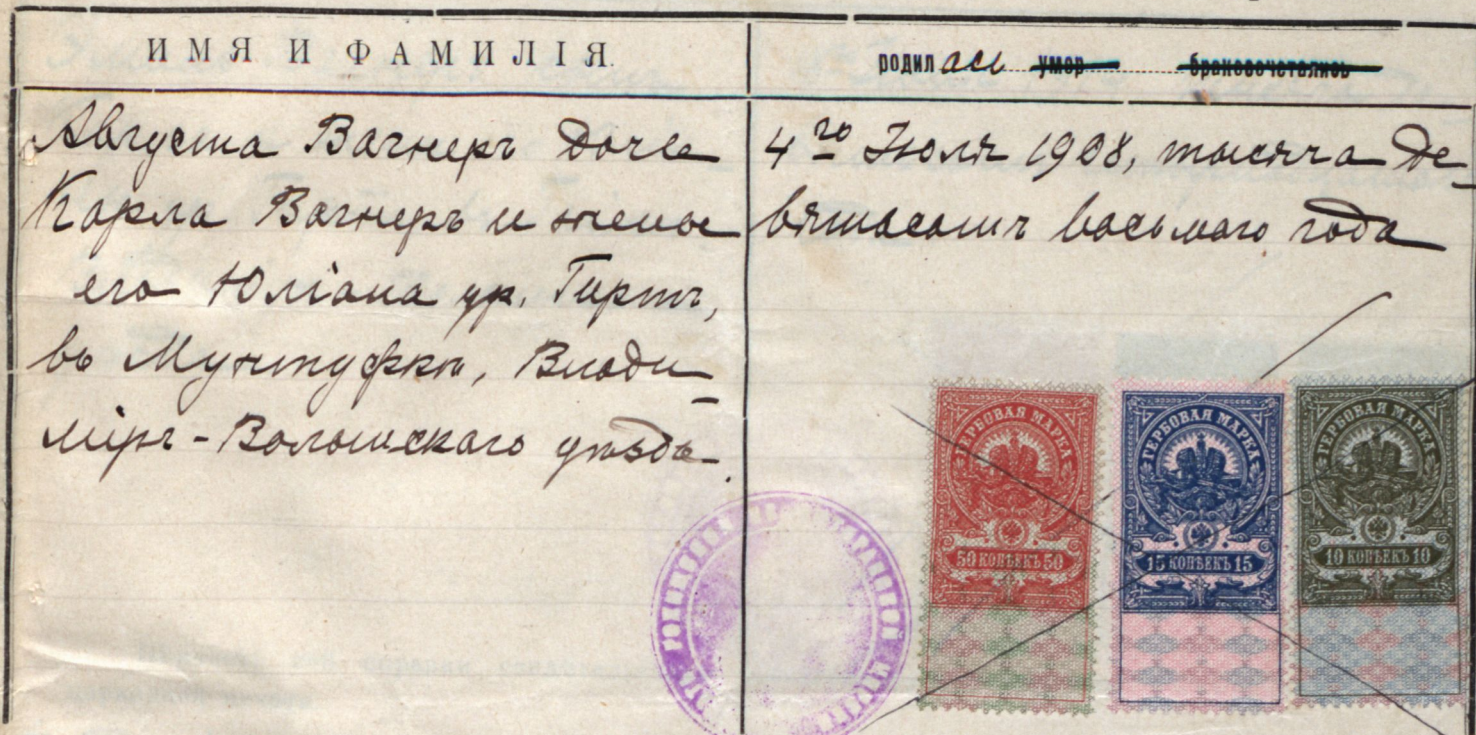 ИМЯ И ФАМИЛІЯ.
родилась умер браковочетались
Августа Вагнеръ дочь
Карла Вагнеръ и жены
его Юліана ур. Гиртъ,
въ Мунтуфкѣ, Влади-
міръ-Волынскаго уѣзда
4го Іюля 1908, тысяча де-
вятьсотъ восьмого года
ГЕРБОВАЯ МАРКА
50 КОПѢЕКЪ 50
ГЕРБОВАЯ МАРКА
15 КОПѢЕКЪ 15
ГЕРБОВАЯ МАРКА
10 КОПѢЕКЪ 10